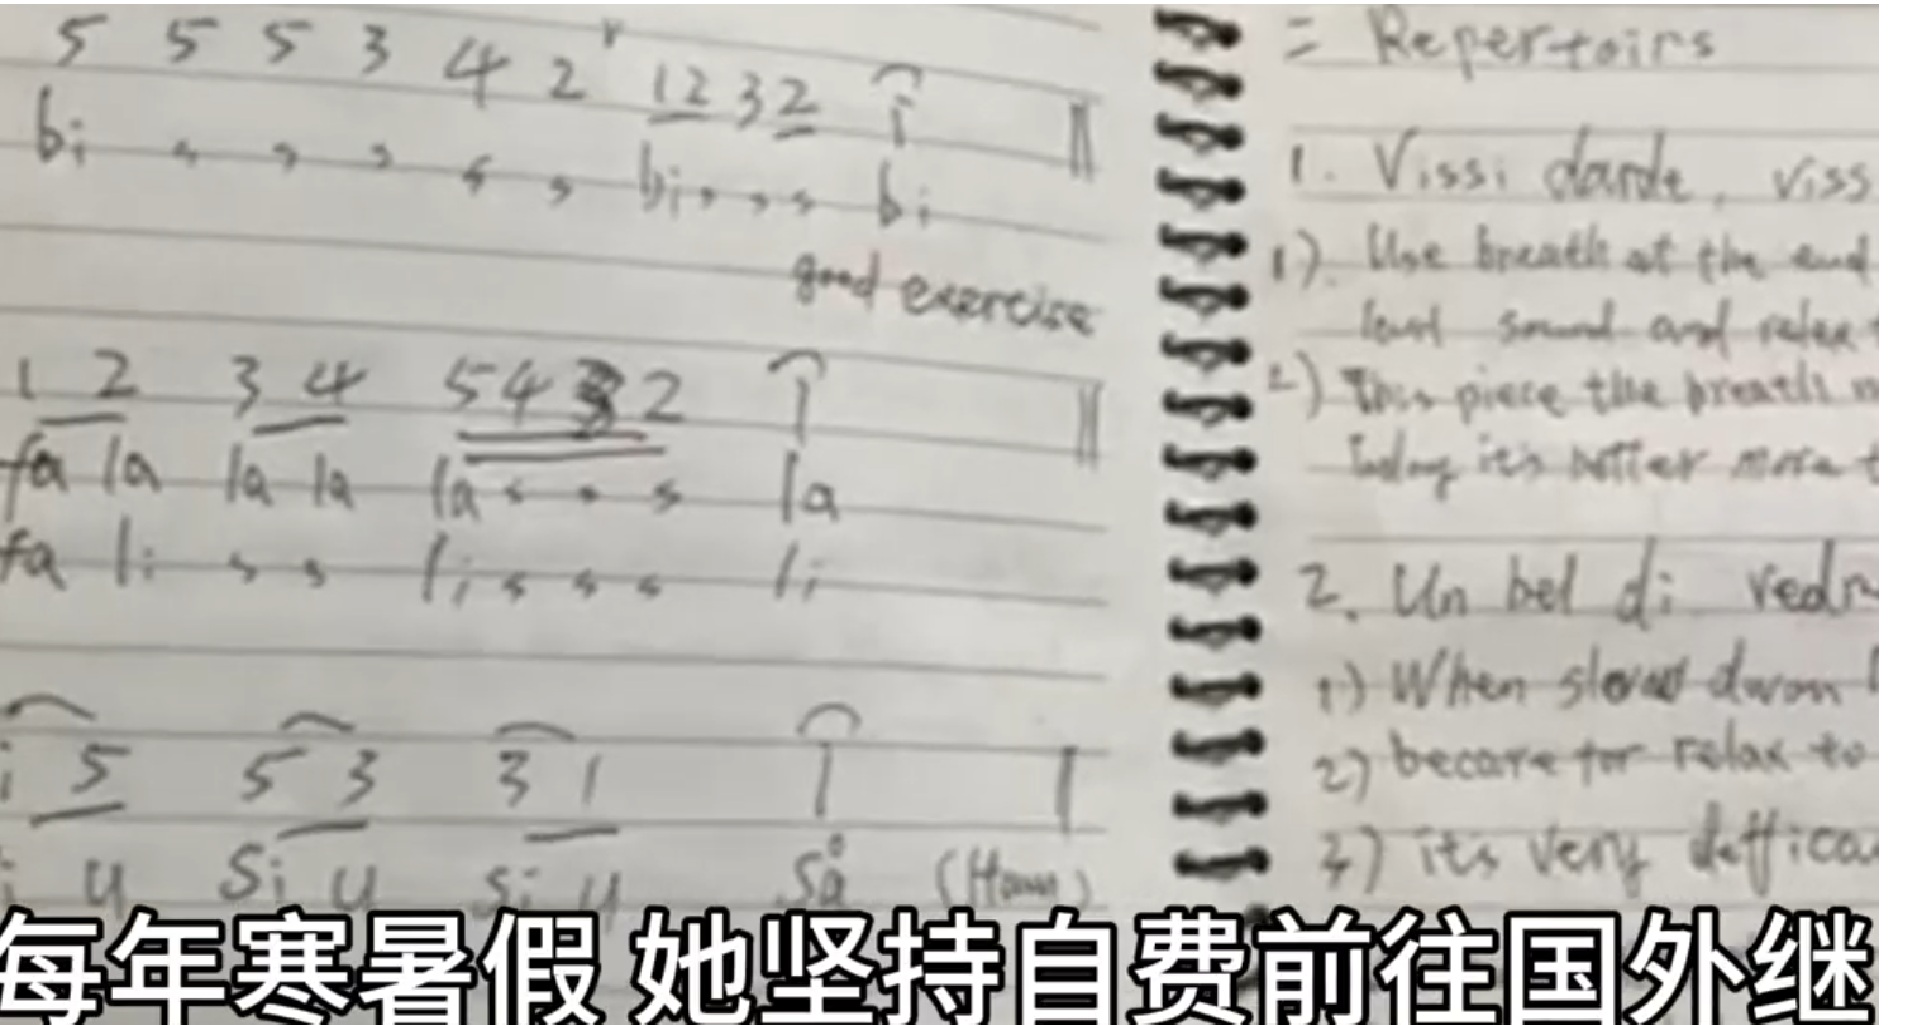 5 5 5 3 4 2 12 32 i
bi bi bi
good exercise
1 2 3 4 5432 1
fa la la la la la
fa li li li
i 5 5 3 3 1 1
i u Si u Si u Sa (Hum)
= Repertoirs
1. Vissi darde, viss
1). Use breath at the end
sound and relax
2) This piece the breath
today it's better more t
2. Un bel di vedr
1) When slowd dwon
2) becare for relax to
3) its very defficu
每年寒暑假 她坚持自费前往国外继